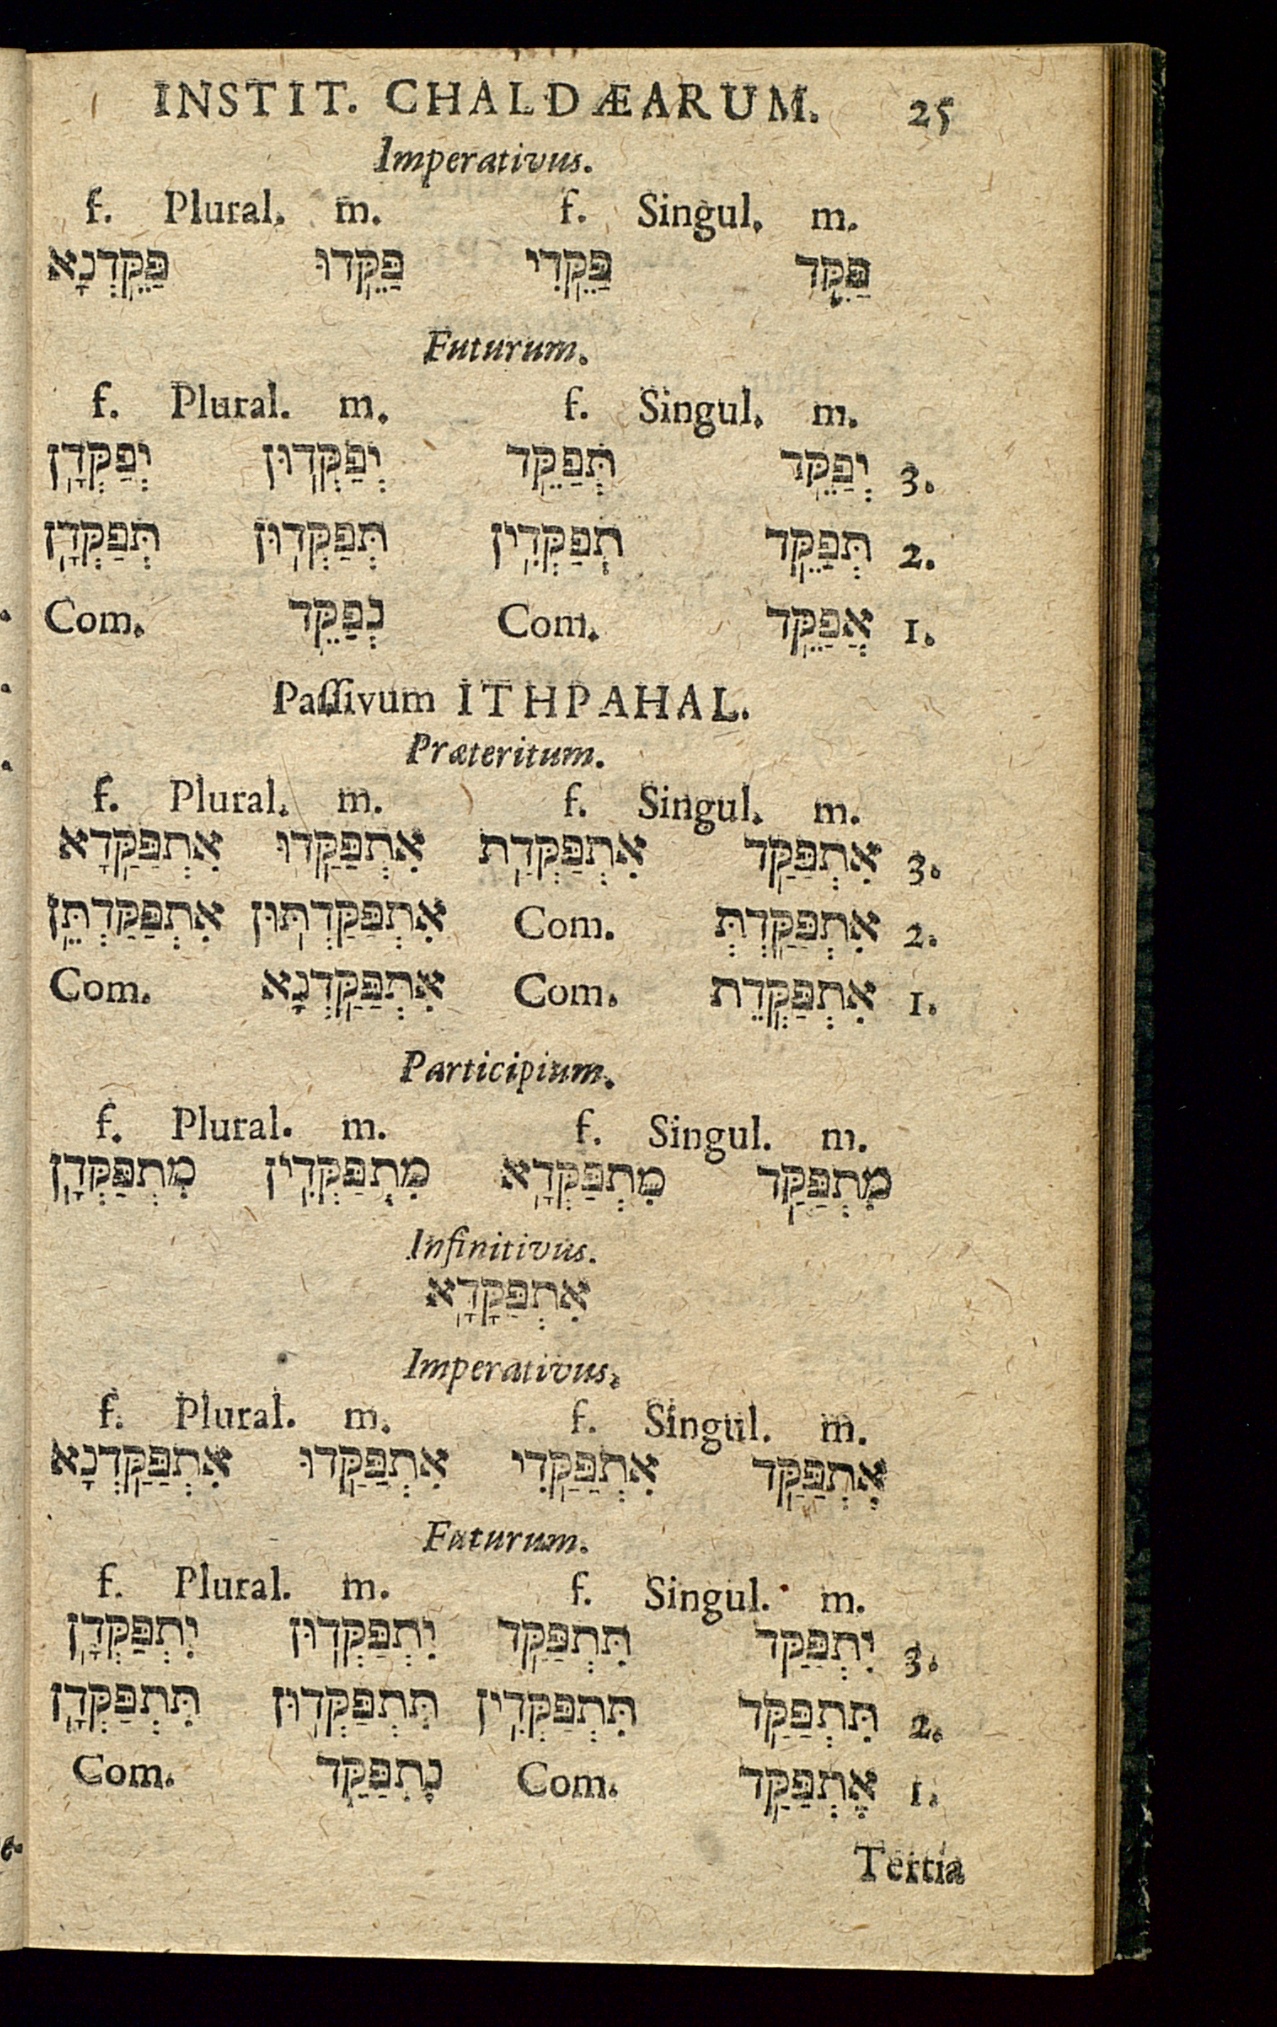 INSTIT. CHALDÆARUM. 25
Imperativus.
f. Plural. m. f. Singul. m.
פַּקֵּד פַּקֵּדִי פַּקֵּדוּ פַּקֵּדְנָא
Futurum.
f. Plural. m. f. Singul. m.
3. יְפַקֵּד תְּפַקֵּד יְפַקְּדוּן יְפַקְּדָן
2. תְּפַקֵּד תְפַקְּדִין תְּפַקְּדוּן תְּפַקְּדָן
1. אֲפַקֵּד Com. נְפַקֵּד Com.
Passivum ITHPAHAL.
Præteritum.
f. Plural. m. f. Singul. m.
3. אִתְפַּקַּד אִתְפַּקְּדַת אִתְפַּקַּדוּ אִתְפַּקַּדָא
2. אִתְפַּקַּדְתְּ Com. אִתְפַּקַּדְתּוּן אִתְפַּקַּדְתֵּן
1. אִתְפַּקְּדֵת Com. אִתְפַּקַּדְנָא Com.
Participium.
f. Plural. m. f. Singul. m.
מִתְפַּקַּד מִתְפַּקְּדָא מִתְפַּקְּדִין מִתְפַּקְּדָן
Infinitivus.
אִתְפַּקָּדָא
Imperativus.
f. Plural. m. f. Singul. m.
אִתְפַּקַּד אִתְפַּקַּדִי אִתְפַּקַּדוּ אִתְפַּקַּדְנָא
Futurum.
f. Plural. m. f. Singul. m.
3. יִתְפַּקַּד תִּתְפַּקַּד יִתְפַּקְּדוּן יִתְפַּקְּדָן
2. תִּתְפַּקַּד תִּתְפַּקְּדִין תִּתְפַּקְּדוּן תִּתְפַּקְּדָן
1. אֶתְפַּקַּד Com. נִתְפַּקַּד Com.
Tertia